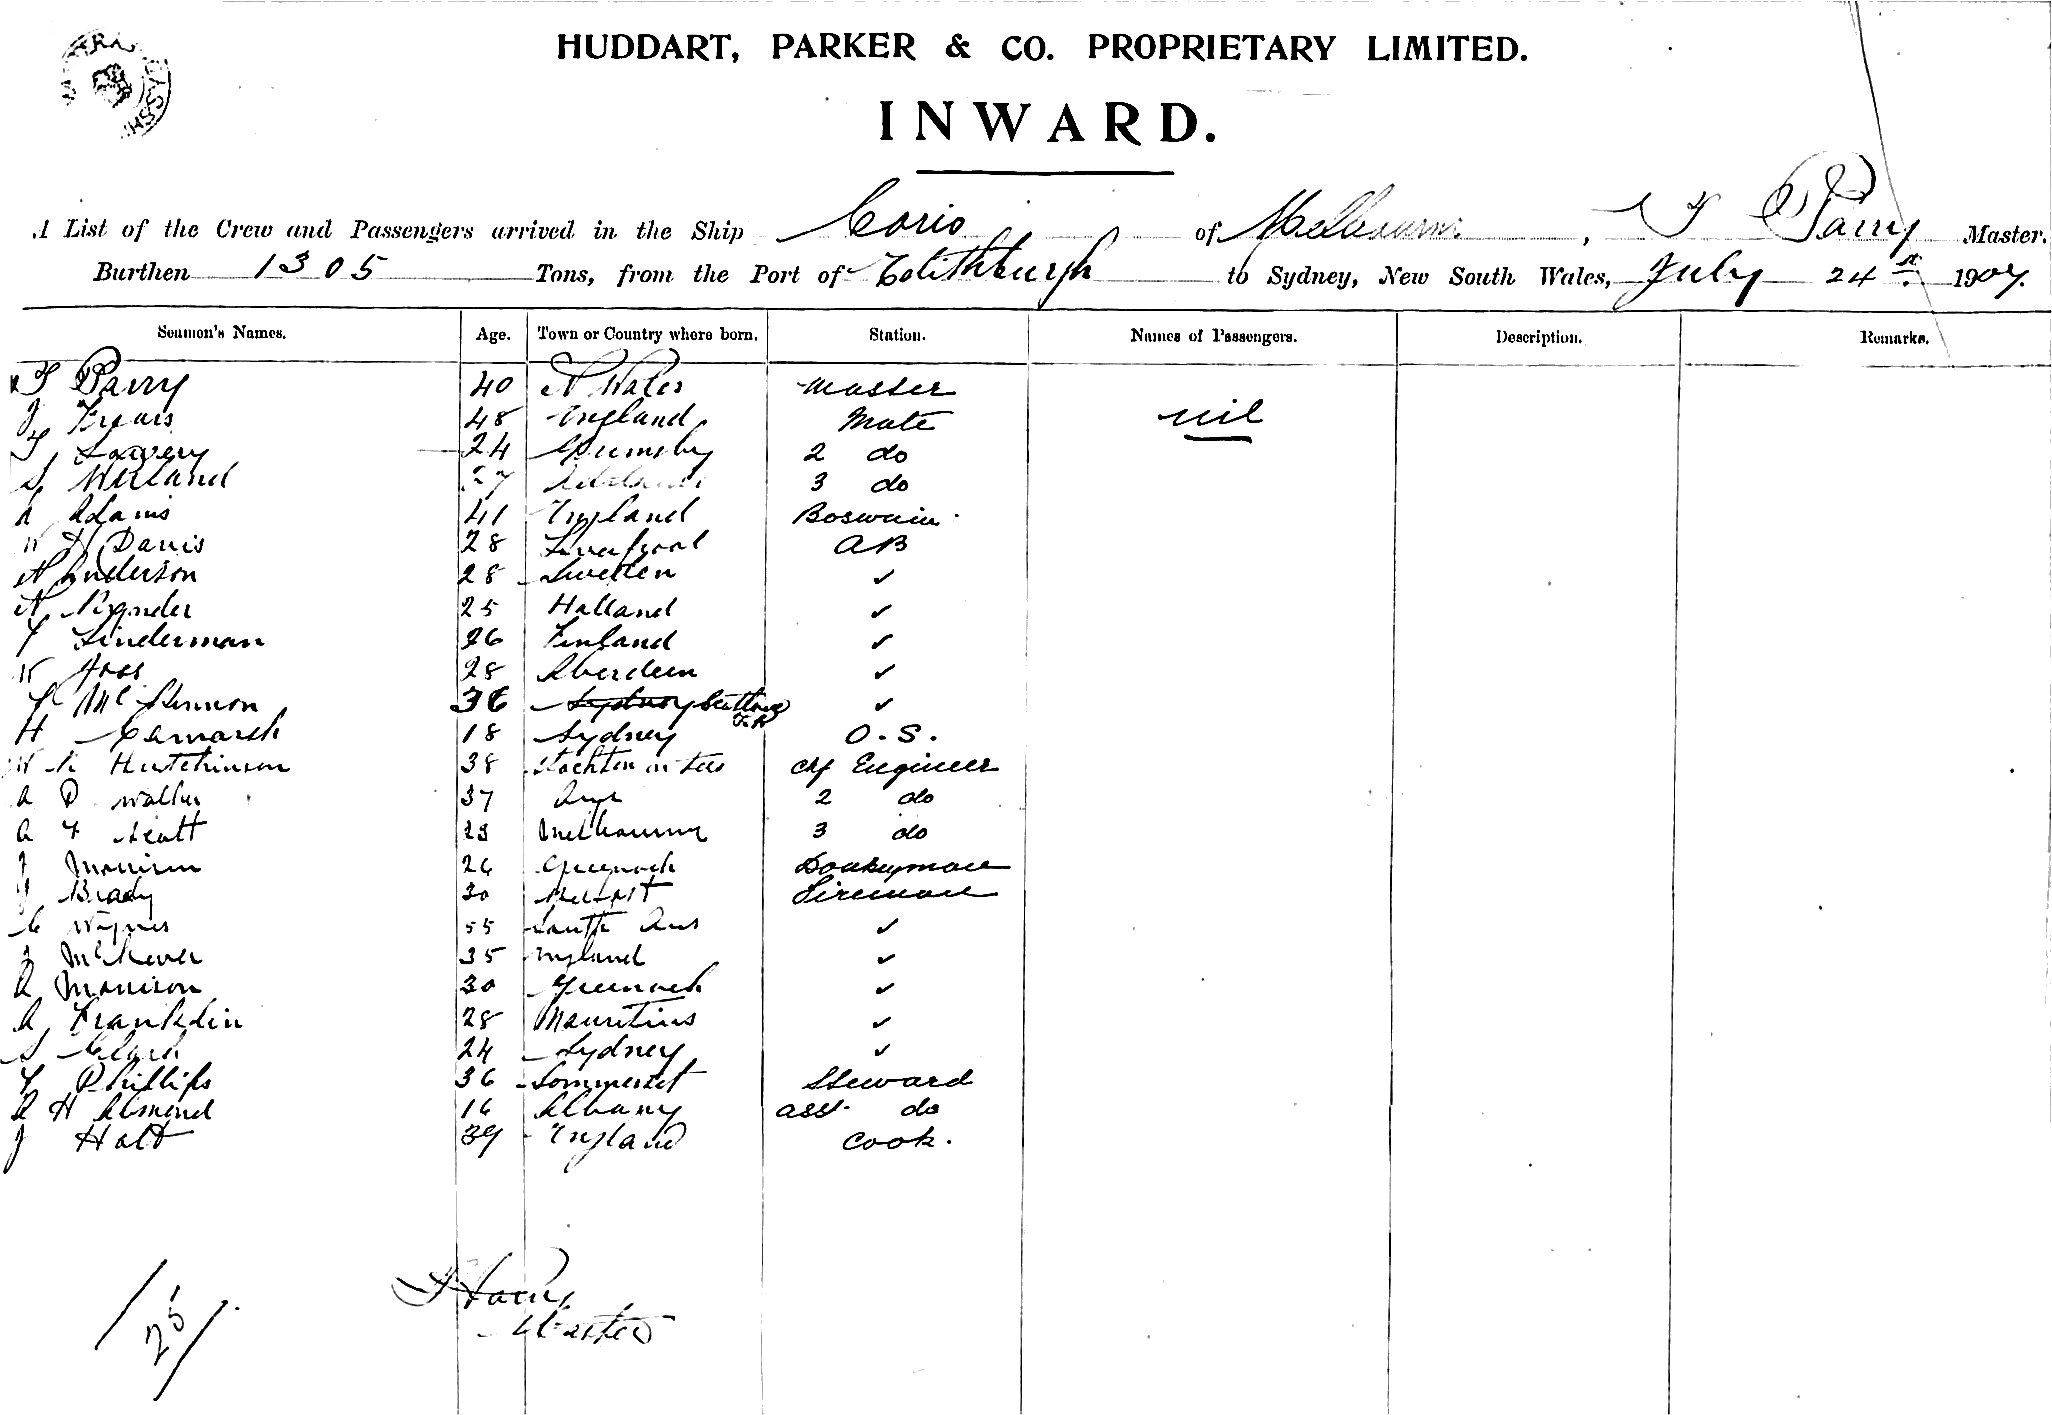 HUDDART, PARKER & CO. PROPRIETARY LIMITED.
INWARD.
A List of the Crew and Passengers arrived in the Ship Corio of Melbourne, T Parry Master.
Burthen 1305 Tons, from the Port of Edithburgh to Sydney, New South Wales, July 24st. 1907.
Seamen's Names. Age. Town or Country where born. Station. Names of Passengers. Description. Remarks.
T Parry 40 N Wales Master
J Fryars 48 England Mate nil
T Lavery 24 Grimsby 2 do
S Merland 27 3 do
A Adams 41 England Boswain
W H Davis 28 Liverpool AB
N Anderson 28 Sweden ✓
N Rynder 25 Holland ✓
F Linderman 26 Finland ✓
W Joss 28 Aberdeen ✓
Mc 36 Sydney ✓
H Camarsh 18 Sydney O.S.
W Hutchinson 38 Stockton on Tees chf Engineer
A P Walker 37 Ayr 2 do
A F Scott 23 Melbourne 3 do
J Morrison 26 Greenock Donkeyman
J Brady 30 Belfast Fireman
C Wagner 55 South Aus ✓
J McKever 35 England ✓
A Morrison 30 Greenock ✓
A Franklin 28 Mauritius ✓
S Clark 24 Sydney ✓
F Phillips 36 Sommerset Steward
A H Almond 16 Albany asst. do
J Holt 39 England Cook.
T Parry
Master
/25/